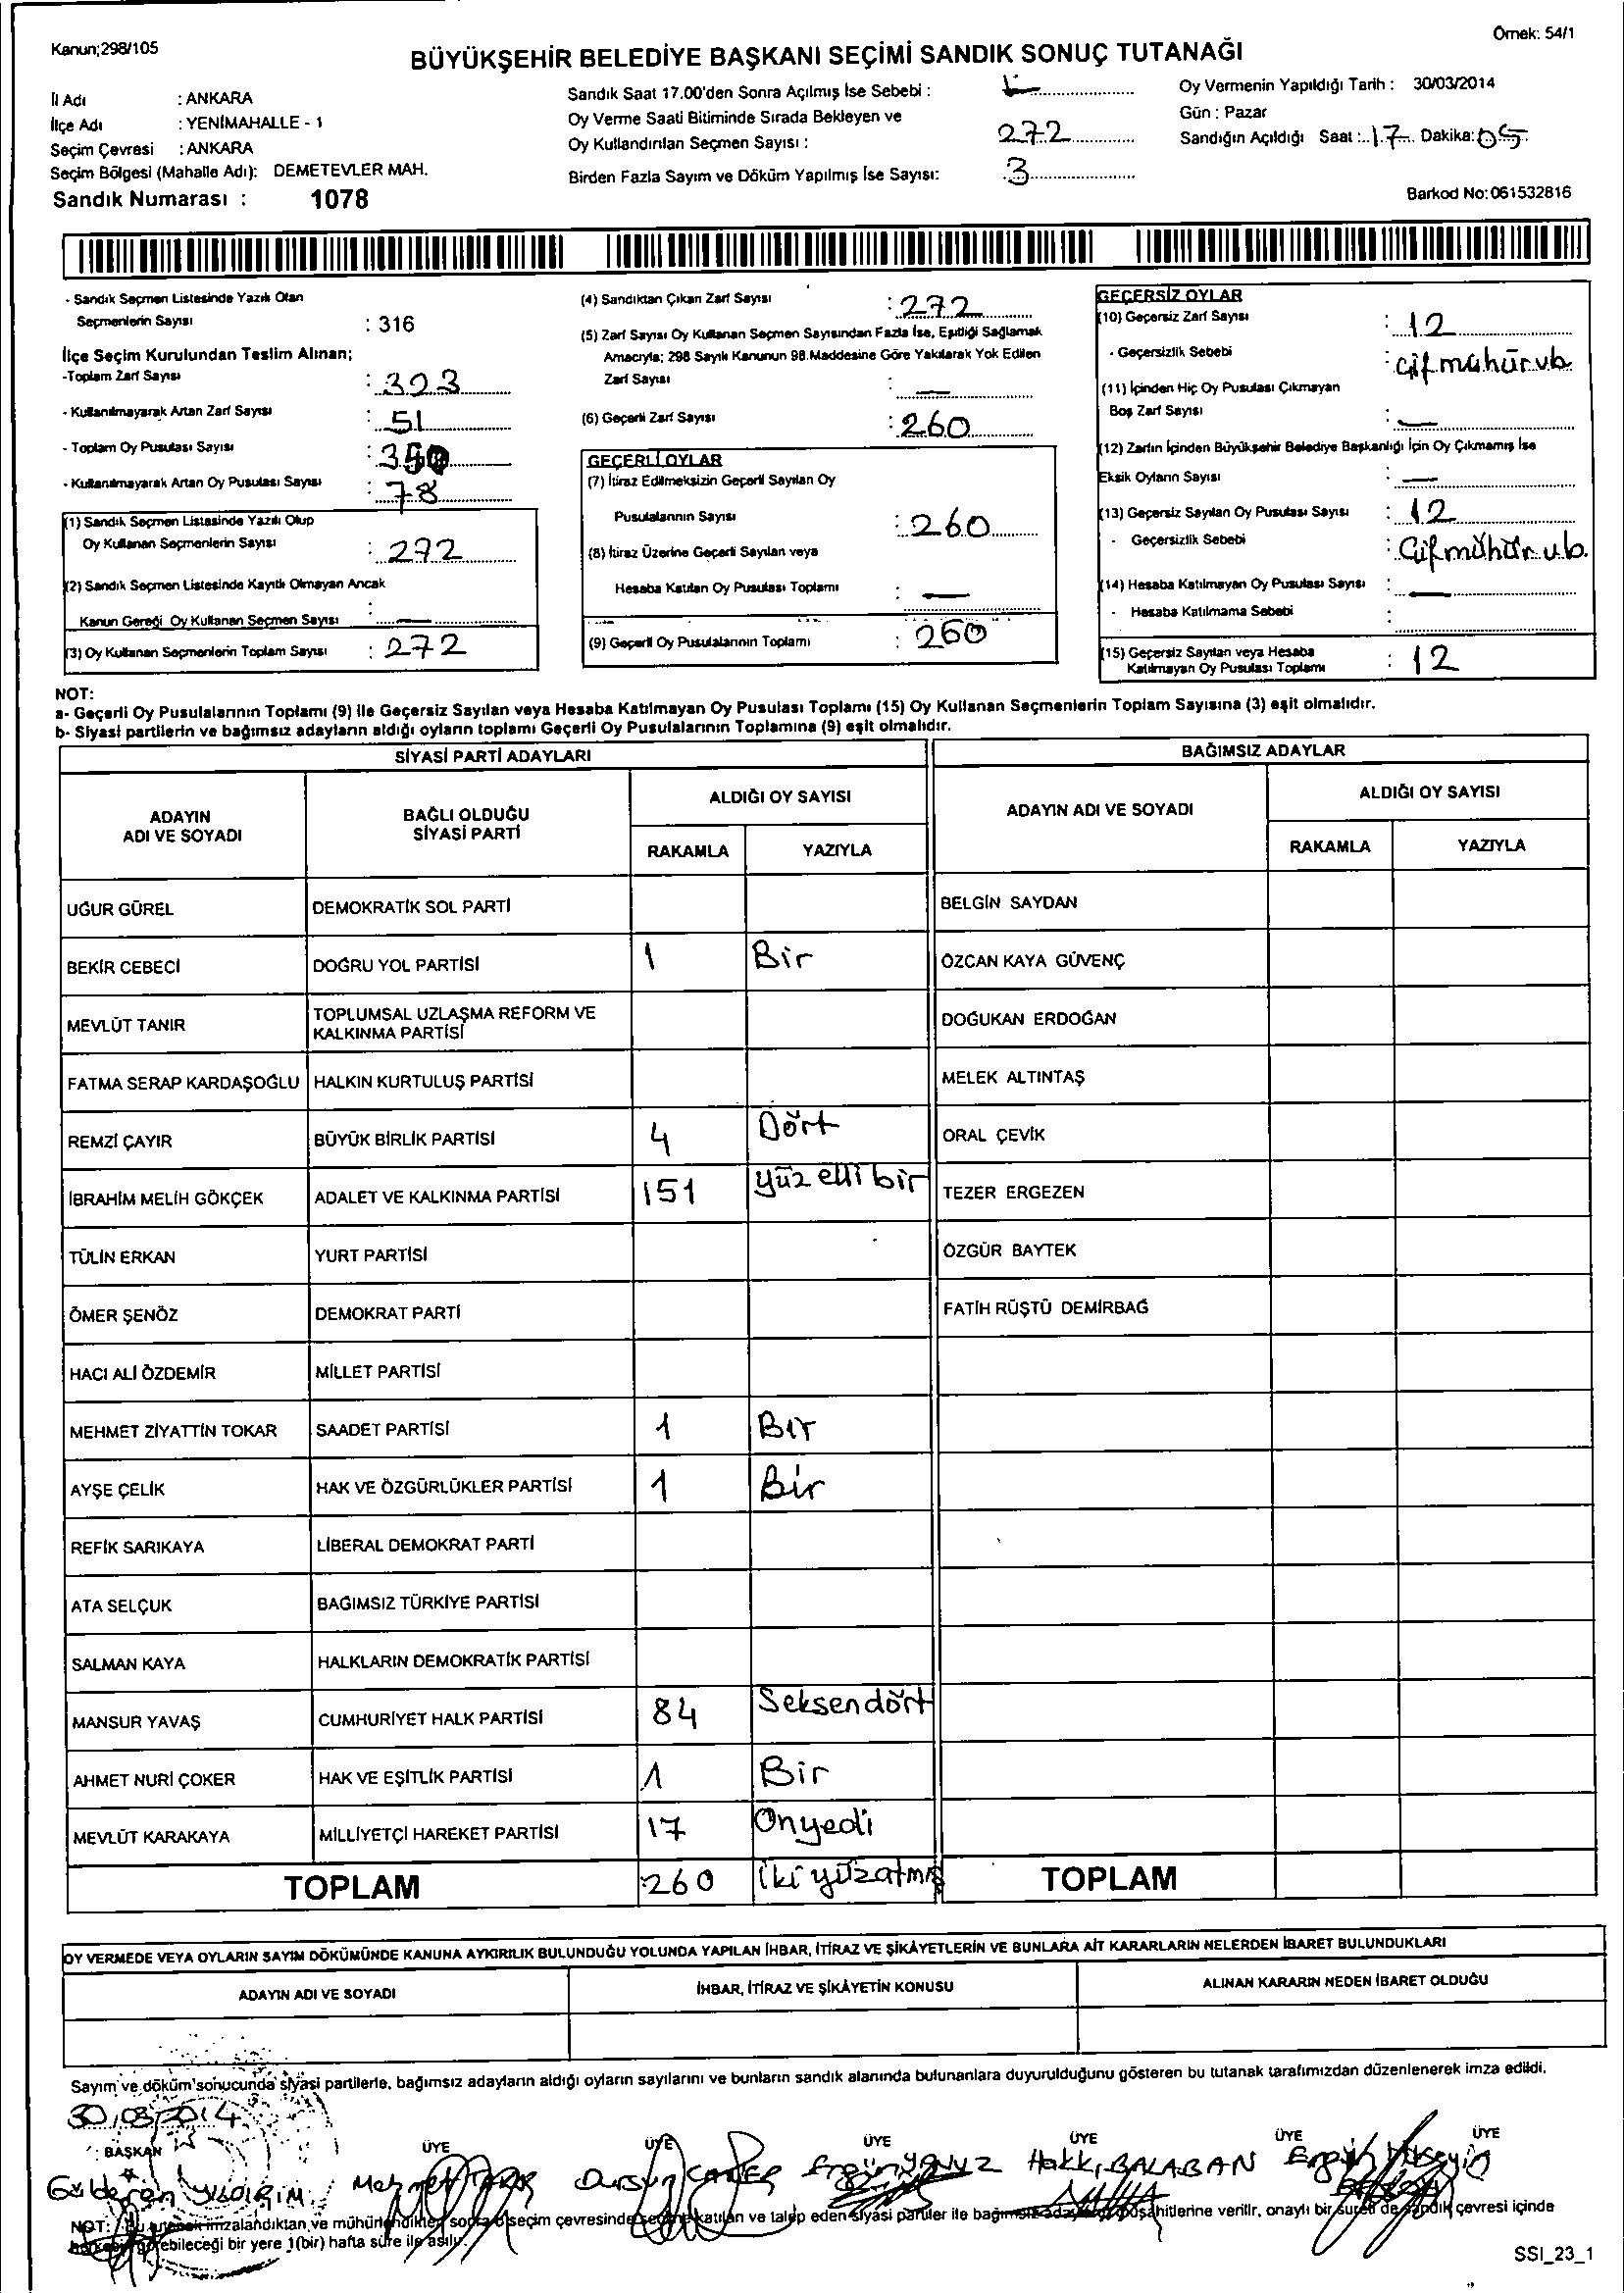 Kanun;298/105
Örnek: 54/1
BÜYÜKŞEHİR BELEDİYE BAŞKANI SEÇİMİ SANDIK SONUÇ TUTANAĞI
İl Adı : ANKARA
İlçe Adı : YENİMAHALLE - 1
Seçim Çevresi : ANKARA
Seçim Bölgesi (Mahalle Adı): DEMETEVLER MAH.
Sandık Numarası : 1078
Sandık Saat 17.00'den Sonra Açılmış İse Sebebi :
Oy Verme Saati Bitiminde Sırada Bekleyen ve
Oy Kullandırılan Seçmen Sayısı : 272
Birden Fazla Sayım ve Döküm Yapılmış İse Sayısı: 3
Oy Vermenin Yapıldığı Tarih : 30/03/2014
Gün : Pazar
Sandığın Açıldığı Saat : 17 Dakika: 05
Barkod No:061532816
- Sandık Seçmen Listesinde Yazılı Olan
Seçmenlerin Sayısı : 316
İlçe Seçim Kurulundan Teslim Alınan;
-Toplam Zarf Sayısı : 323
- Kullanılmayarak Artan Zarf Sayısı : 51
- Toplam Oy Pusulası Sayısı : 350
- Kullanılmayarak Artan Oy Pusulası Sayısı : 78
(1) Sandık Seçmen Listesinde Yazılı Olup
Oy Kullanan Seçmenlerin Sayısı : 272
(2) Sandık Seçmen Listesinde Kayıtlı Olmayan Ancak
Kanun Gereği Oy Kullanan Seçmen Sayısı : —
(3) Oy Kullanan Seçmenlerin Toplam Sayısı : 272
(4) Sandıktan Çıkan Zarf Sayısı : 272
(5) Zarf Sayısı Oy Kullanan Seçmen Sayısından Fazla İse, Eşitliği Sağlamak
Amacıyla; 298 Sayılı Kanunun 98.Maddesine Göre Yakılarak Yok Edilen
Zarf Sayısı : —
(6) Geçerli Zarf Sayısı : 260
GEÇERLİ OYLAR
(7) İtiraz Edilmeksizin Geçerli Sayılan Oy
Pusulalarının Sayısı : 260
(8) İtiraz Üzerine Geçerli Sayılan veya
Hesaba Katılan Oy Pusulası Toplamı : —
(9) Geçerli Oy Pusulalarının Toplamı : 260
GEÇERSİZ OYLAR
(10) Geçersiz Zarf Sayısı : 12
- Geçersizlik Sebebi : Çift mühür vb.
(11) İçinden Hiç Oy Pusulası Çıkmayan
Boş Zarf Sayısı : —
(12) Zarfın İçinden Büyükşehir Belediye Başkanlığı İçin Oy Çıkmamış İse
Eksik Oyların Sayısı : —
(13) Geçersiz Sayılan Oy Pusulası Sayısı : 12
- Geçersizlik Sebebi : Çift mühür vb.
(14) Hesaba Katılmayan Oy Pusulası Sayısı : —
- Hesaba Katılmama Sebebi :
(15) Geçersiz Sayılan veya Hesaba
Katılmayan Oy Pusulası Toplamı : 12
NOT:
a- Geçerli Oy Pusulalarının Toplamı (9) ile Geçersiz Sayılan veya Hesaba Katılmayan Oy Pusulası Toplamı (15) Oy Kullanan Seçmenlerin Toplam Sayısına (3) eşit olmalıdır.
b- Siyasi partilerin ve bağımsız adayların aldığı oyların toplamı Geçerli Oy Pusulalarının Toplamına (9) eşit olmalıdır.
SİYASİ PARTİ ADAYLARI
ADAYIN ADI VE SOYADI BAĞLI OLDUĞU SİYASİ PARTİ ALDIĞI OY SAYISI
RAKAMLA YAZIYLA
UĞUR GÜREL DEMOKRATİK SOL PARTİ
BEKİR CEBECİ DOĞRU YOL PARTİSİ 1 Bir
MEVLÜT TANIR TOPLUMSAL UZLAŞMA REFORM VE KALKINMA PARTİSİ
FATMA SERAP KARDAŞOĞLU HALKIN KURTULUŞ PARTİSİ
REMZİ ÇAYIR BÜYÜK BİRLİK PARTİSİ 4 Dört
İBRAHİM MELİH GÖKÇEK ADALET VE KALKINMA PARTİSİ 151 yüz elli bir
TÜLİN ERKAN YURT PARTİSİ
ÖMER ŞENÖZ DEMOKRAT PARTİ
HACI ALİ ÖZDEMİR MİLLET PARTİSİ
MEHMET ZİYATTİN TOKAR SAADET PARTİSİ 1 Bir
AYŞE ÇELİK HAK VE ÖZGÜRLÜKLER PARTİSİ 1 Bir
REFİK SARIKAYA LİBERAL DEMOKRAT PARTİ
ATA SELÇUK BAĞIMSIZ TÜRKİYE PARTİSİ
SALMAN KAYA HALKLARIN DEMOKRATİK PARTİSİ
MANSUR YAVAŞ CUMHURİYET HALK PARTİSİ 84 Seksendört
AHMET NURİ ÇOKER HAK VE EŞİTLİK PARTİSİ 1 Bir
MEVLÜT KARAKAYA MİLLİYETÇİ HAREKET PARTİSİ 17 Onyedi
TOPLAM 260 İki yüzatmış
BAĞIMSIZ ADAYLAR
ADAYIN ADI VE SOYADI ALDIĞI OY SAYISI
RAKAMLA YAZIYLA
BELGİN SAYDAN
ÖZCAN KAYA GÜVENÇ
DOĞUKAN ERDOĞAN
MELEK ALTINTAŞ
ORAL ÇEVİK
TEZER ERGEZEN
ÖZGÜR BAYTEK
FATİH RÜŞTÜ DEMİRBAĞ
TOPLAM
OY VERMEDE VEYA OYLARIN SAYIM DÖKÜMÜNDE KANUNA AYKIRILIK BULUNDUĞU YOLUNDA YAPILAN İHBAR, İTİRAZ VE ŞİKÂYETLERİN VE BUNLARA AİT KARARLARIN NELERDEN İBARET BULUNDUKLARI
ADAYIN ADI VE SOYADI İHBAR, İTİRAZ VE ŞİKÂYETİN KONUSU ALINAN KARARIN NEDEN İBARET OLDUĞU
Sayım ve döküm sonucunda siyasi partilerle, bağımsız adayların aldığı oyların sayılarını ve bunların sandık alanında bulunanlara duyurulduğunu gösteren bu tutanak tarafımızdan düzenlenerek imza edildi.
30/03/2014
BAŞKAN ÜYE ÜYE ÜYE ÜYE ÜYE ÜYE
YILDIRIM Mehmet Dursun Ergün Hakkı BALABAN
NOT: Bu tutanak imzalandıktan ve mühürlendikten sonra seçim çevresinde seçime katılan ve talep eden siyasi partiler ile bağımsız aday müşahitlerine verilir, onaylı bir sureti de sandık çevresi içinde
herkesin görebileceği bir yere 1(bir) hafta süre ile asılır.
SSI_23_1